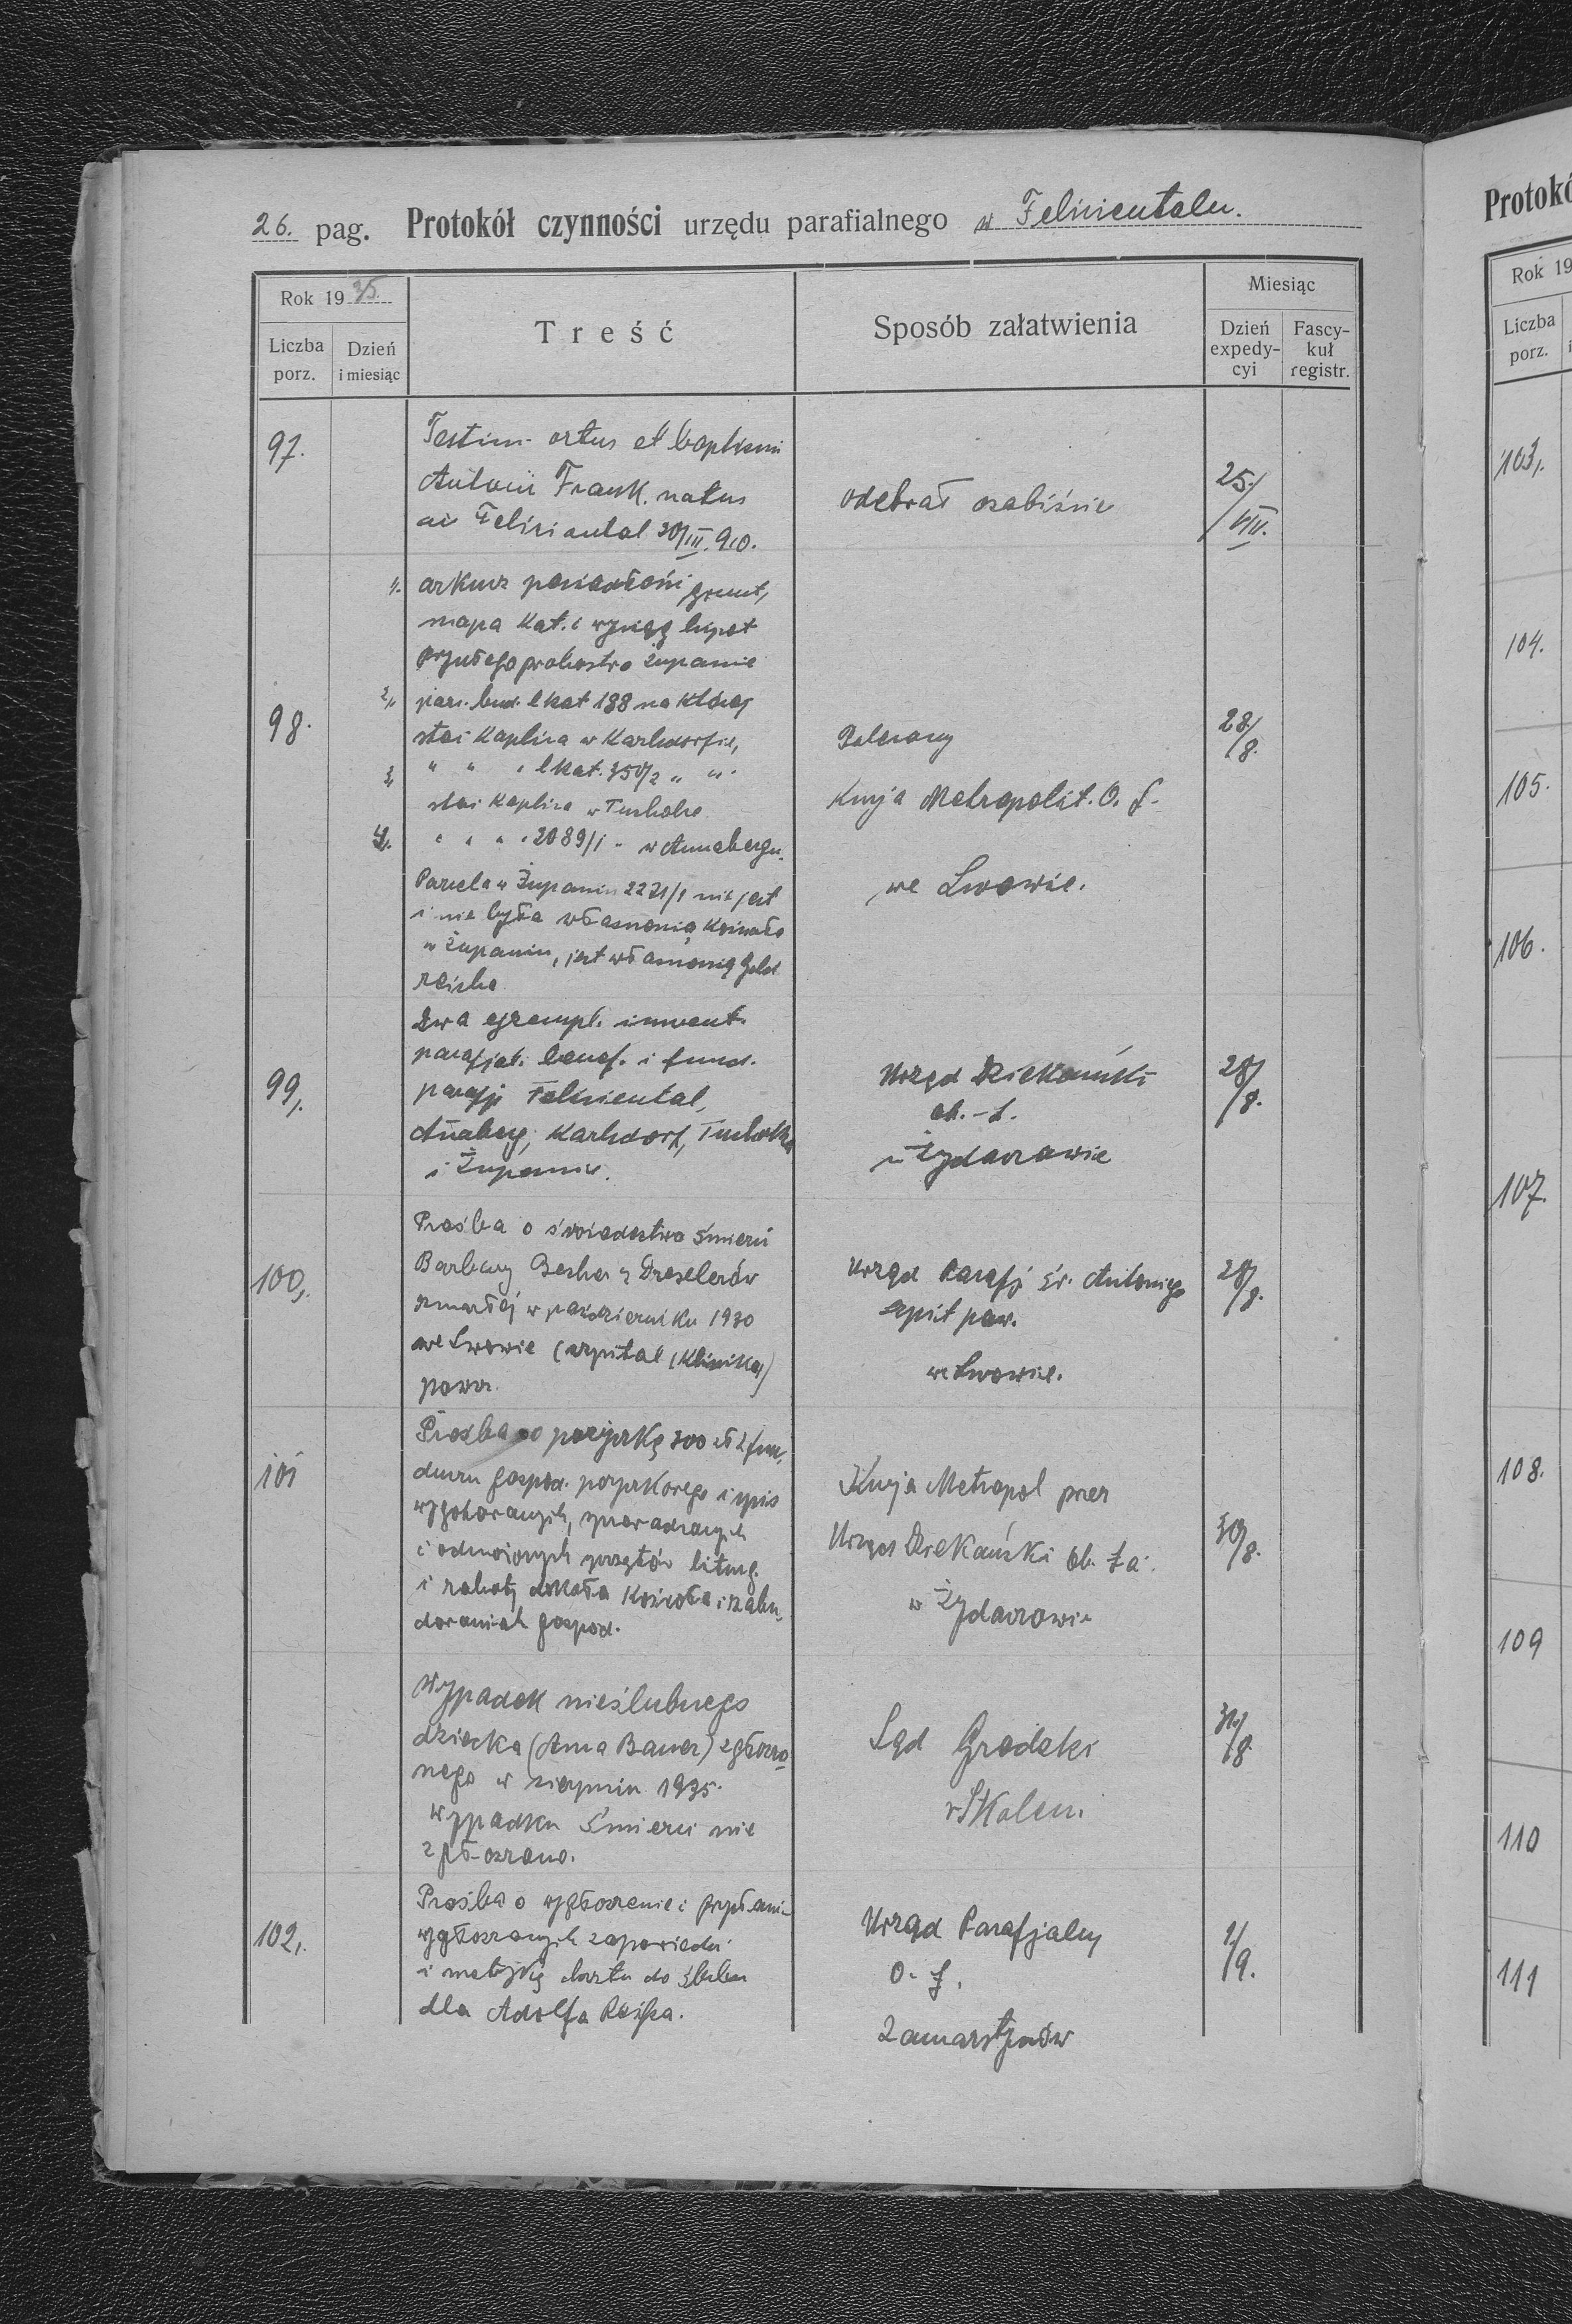 26. pag. Protokół czynności urzędu parafialnego w Felicientalu.
Rok 1935.
Liczba porz.
Dzień i miesiąc
Treść
Sposób załatwienia
Miesiąc
Dzień expedycyi
Fascykuł registr.
97.
Testim. ortus et baptismi
Antonii Frank. natus
Felicientál 30/III. 910.
odebrał osobiście
25./VIII.
98.
1. arkusz posiadłości grunt,
mapa kat. i wyciąg hipot
probostwo Żupanie
2, parc. bud. lkat 188 na której
stoi Kaplica w Karlsdorfie,
3, " " " lkat. 350/2 " "
stoi kaplica w Tucholce
4, " " " " 2089/1 - w Annabergu.
Parcela w Żupaniu 2221/1 nie jest
i nie była własnością kościoła
w Żupaniu, jest własnością Gold
reicha
Polecony
Kurja Metropolit. O. Ł.
we Lwowie.
28/8.
99,
Dwa egzempl. inwent.
parafjal. benef. i fund.
parafji Feliciental,
Annaberg, Karlsdorf, Tucholka
i Żupanie.
Urząd Dziekański
ob. Ł.
w Żydaczowie
28/8.
100,
Prośba o świadectwo śmierci
Barbary z Dreslerów
zmarłej w październiku 1930
we Lwowie (szpital (Klinika)
powsz.
Urząd Parafj. św. Antoniego
szpit pow.
we Lwowie.
28/8.
101
Prośba o pożyczkę 300 zł z fun-
duszu gospod. pożyczkowego i spis
sprowadzonych
i odnowionych sprzętów liturg.
i roboty dokoła Kościoła i zabu-
dowaniach gospod.
Kurja Metropol przez
Urząd Dziekański ob. ła.
w Żydaczowie
30/8.
Wypadek nieślubnego
dziecka (Anna Bauer) zgłoszo-
nego w sierpniu 1935.
Wypadku śmierci nie
zgłoszono.
Sąd Grodzki
w Skolem.
31/8
102,
Prośba o wygłoszenie i
wygłoszonych zapowiedzi
i metrykę chrztu do ślubu
dla Adolfa
Urząd Parafjalny
O. Ł.
Zamarstynów
1/9.
Protokó
Rok 19
Liczba porz.
103,
104.
105.
106.
107.
108.
109
110
111